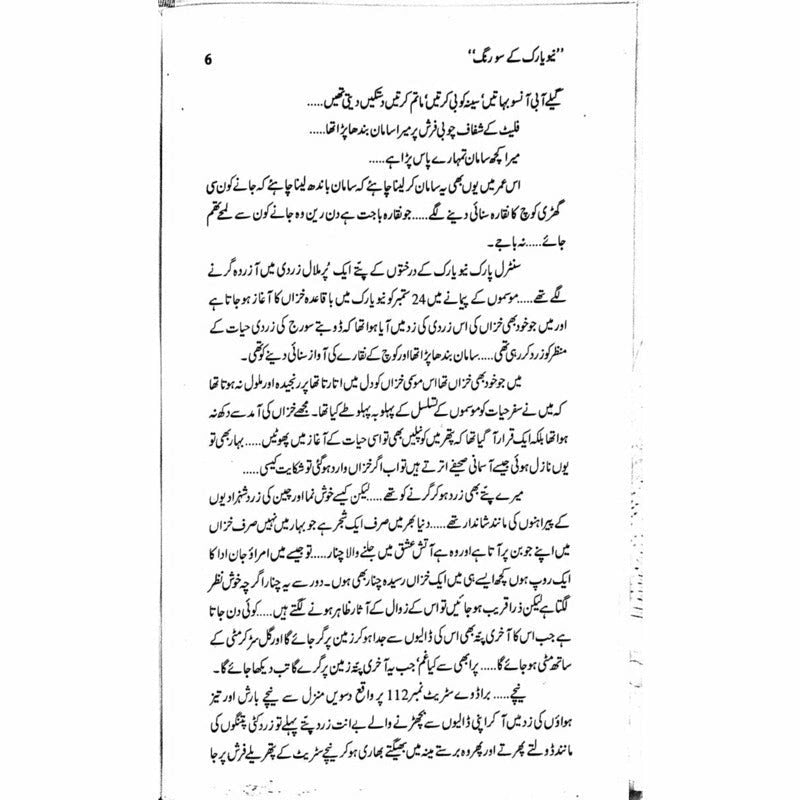 6 ’’نیویارک کے سو رنگ‘‘
گیلے آبی آنسو بہاتیں‘ سینہ کوبی کرتیں‘ ماتم کرتیں دستکیں دیتی تھیں.....
فلیٹ کے شفاف چوبی فرش پر میرا سامان بندھا پڑا تھا.....
میرا کچھ سامان تمہارے پاس پڑا ہے.....
اس عمر میں یوں بھی یہ سامان کر لینا چاہئے کہ سامان باندھ لینا چاہئے کہ جانے کون سی
گھڑی کوچ کا نقارہ سنائی دینے لگے.....جو نقارہ باجت ہے دن رین وہ جانے کون سے لمحے تھم
جائے.....نہ باجے۔
سنٹرل پارک نیویارک کے درختوں کے پتے ایک پُرملال زردی میں آزردہ گرنے
لگے تھے.....موسموں کے پیمانے میں 24 ستمبر کو نیویارک میں باقاعدہ خزاں کا آغاز ہو جاتا ہے
اور میں جو خود بھی خزاں کی اس زردی کی زد میں آیا ہوا تھا کہ ڈوبتے سورج کی زردی حیات کے
منظر کو زرد کر رہی تھی.....سامان بندھا پڑا تھا اور کوچ کے نقارے کی آواز سنائی دینے کو تھی۔
میں جو خود بھی خزاں تھا اس موسمی خزاں کو دل میں اتارتا تھا پر رنجیدہ اور ملول نہ ہوتا تھا
کہ میں نے سفر حیات کو موسموں کے تسلسل کے پہلو بہ پہلو طے کیا تھا۔ مجھے خزاں کی آمد سے دکھ نہ
ہوا تھا بلکہ ایک قرار آ گیا تھا کہ پتھر میں کونپلیں بھی تو اسی حیات کے آغاز میں پھوٹیں.....بہار بھی تو
یوں نازل ہوئی جیسے آسمانی صحیفے اترتے ہیں تو اب اگر خزاں وارد ہو گئی تو شکایت کیسی.....
میرے پتے بھی زرد ہو کر گرنے کو تھے.....لیکن کیسے خوش نما اور چین کی زرد شہزادیوں
کے پیراہنوں کی مانند شاندار تھے.....دنیا بھر میں صرف ایک شجر ہے جو بہار میں نہیں صرف خزاں
میں اپنے جوبن پر آتا ہے اور وہ ہے آتش عشق میں جلنے والا چنار.....تو جیسے میں امراؤ جان ادا کا
ایک روپ ہوں کچھ ایسے ہی میں ایک خزاں رسیدہ چنار بھی ہوں۔ دور سے یہ چنار اگرچہ خوش نظر
لگتا ہے لیکن ذرا قریب ہو جائیں تو اس کے زوال کے آثار ظاہر ہونے لگتے ہیں.....کوئی دن جاتا
ہے جب اس کا آخری پتہ بھی اس کی ڈالیوں سے جدا ہو کر زمین پر گر جائے گا اور گل سڑ کر مٹی کے
ساتھ مٹی ہو جائے گا.....پر ابھی سے کیا غم‘ جب یہ آخری پتہ زمین پر گرے گا تب دیکھا جائے گا۔
نیچے.....براڈوے سٹریٹ نمبر 112 پر واقع دسویں منزل سے نیچے بارش اور تیز
ہواؤں کی زد میں آ کر اپنی ڈالیوں سے بچھڑنے والے بے انت زرد پتے پہلے تو زرد کٹی پتنگوں کی
مانند ڈولتے پھرتے اور پھر وہ برستے مینہ میں بھیگتے بھاری ہو کر نیچے سٹریٹ کے پتھریلے فرش پر جا